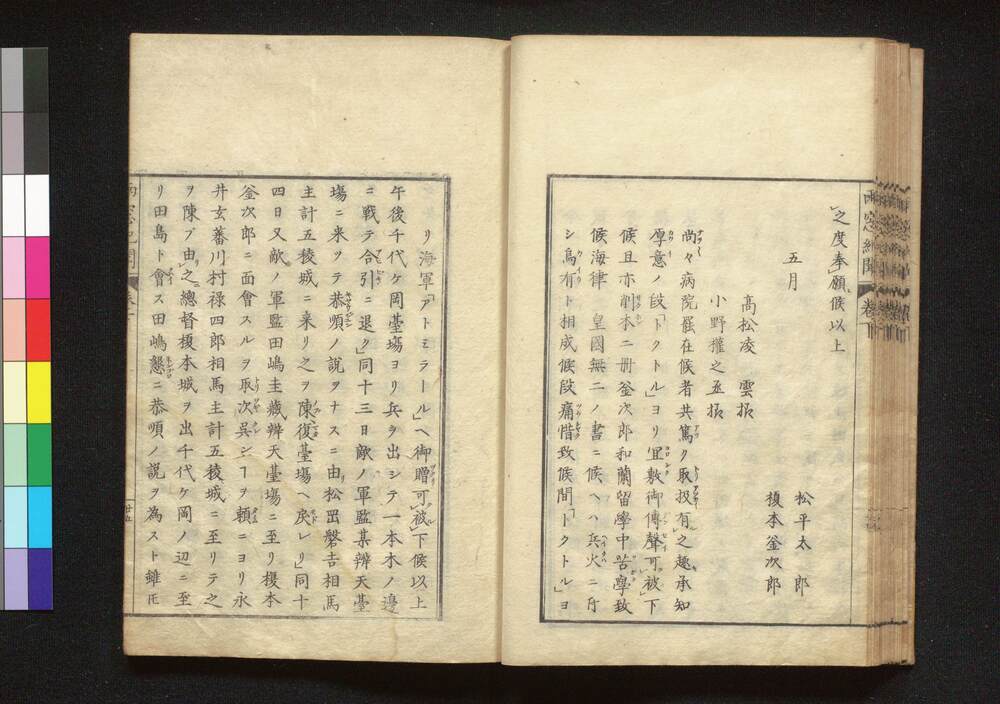 之度奉願候以上
五月
松平太郎
榎本釜次郎
髙松凌雲拆
小野權之丞拆
尚々病院罷在候者共篤ク取扱有之趣承知
厚意ノ段「ドクトル」ヨリ宜敷御傳聲可被下
候且亦別本二冊釜次郎和蘭留學中苦學致
候海律皇國無二ノ書ニ候ヘハ兵火ニ付
シ烏有ト相成候段痛惜致候間「ドクトル」ヨ
リ海軍「アトミラール」ヘ御贈可被下候以上
午後千代ケ岡臺塲ヨリ兵ヲ出シテ一本木ノ邊
ニ戰テ合引ニ退ク同十三日敵ノ軍監某辨天臺
塲ニ来ツテ恭順ノ説ヲナスニ由リ松岡磐吉相馬
主計五稜城ニ来リ之ヲ陳復臺塲ヘ戾レリ同十
四日又敵ノ軍監田嶋圭藏辨天臺塲ニ至リ榎本
釜次郎ニ面會スルヲ取次呉ンヿヲ頼ニヨリ永
井玄蕃川村禄四郎相馬主計五稜城ニ至リテ之
ヲ陳ブ由之總督榎本城ヲ出千代ケ岡ノ辺ニ至
リ田島ト會ス田嶋懇ニ恭順ノ説ヲ為スト雖𪜈